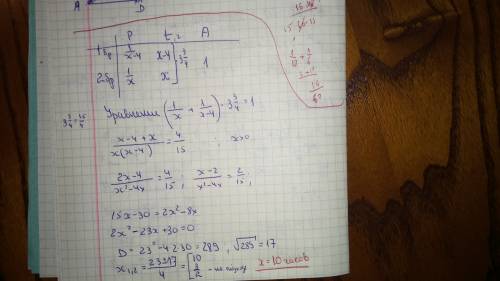 A D
P t, г A
1 бр 1/(x-4) x-4 3 3/4 1
2 бр 1/x x
3 3/4 = 15/4 Уравнение (1/x + 1/(x-4)) · 3 3/4 = 1
(x-4+x)/(x(x-4)) = 4/15 ; x>0
(2x-4)/(x²-4x) = 4/15 ; (x-2)/(x²-4x) = 2/15 ;
15x-30=2x²-8x
2x²-23x+30=0
D = 23²-4·2·30=289, √289=17
x₁,₂ = (23±17)/4 = [10
3/2
x=10 часов